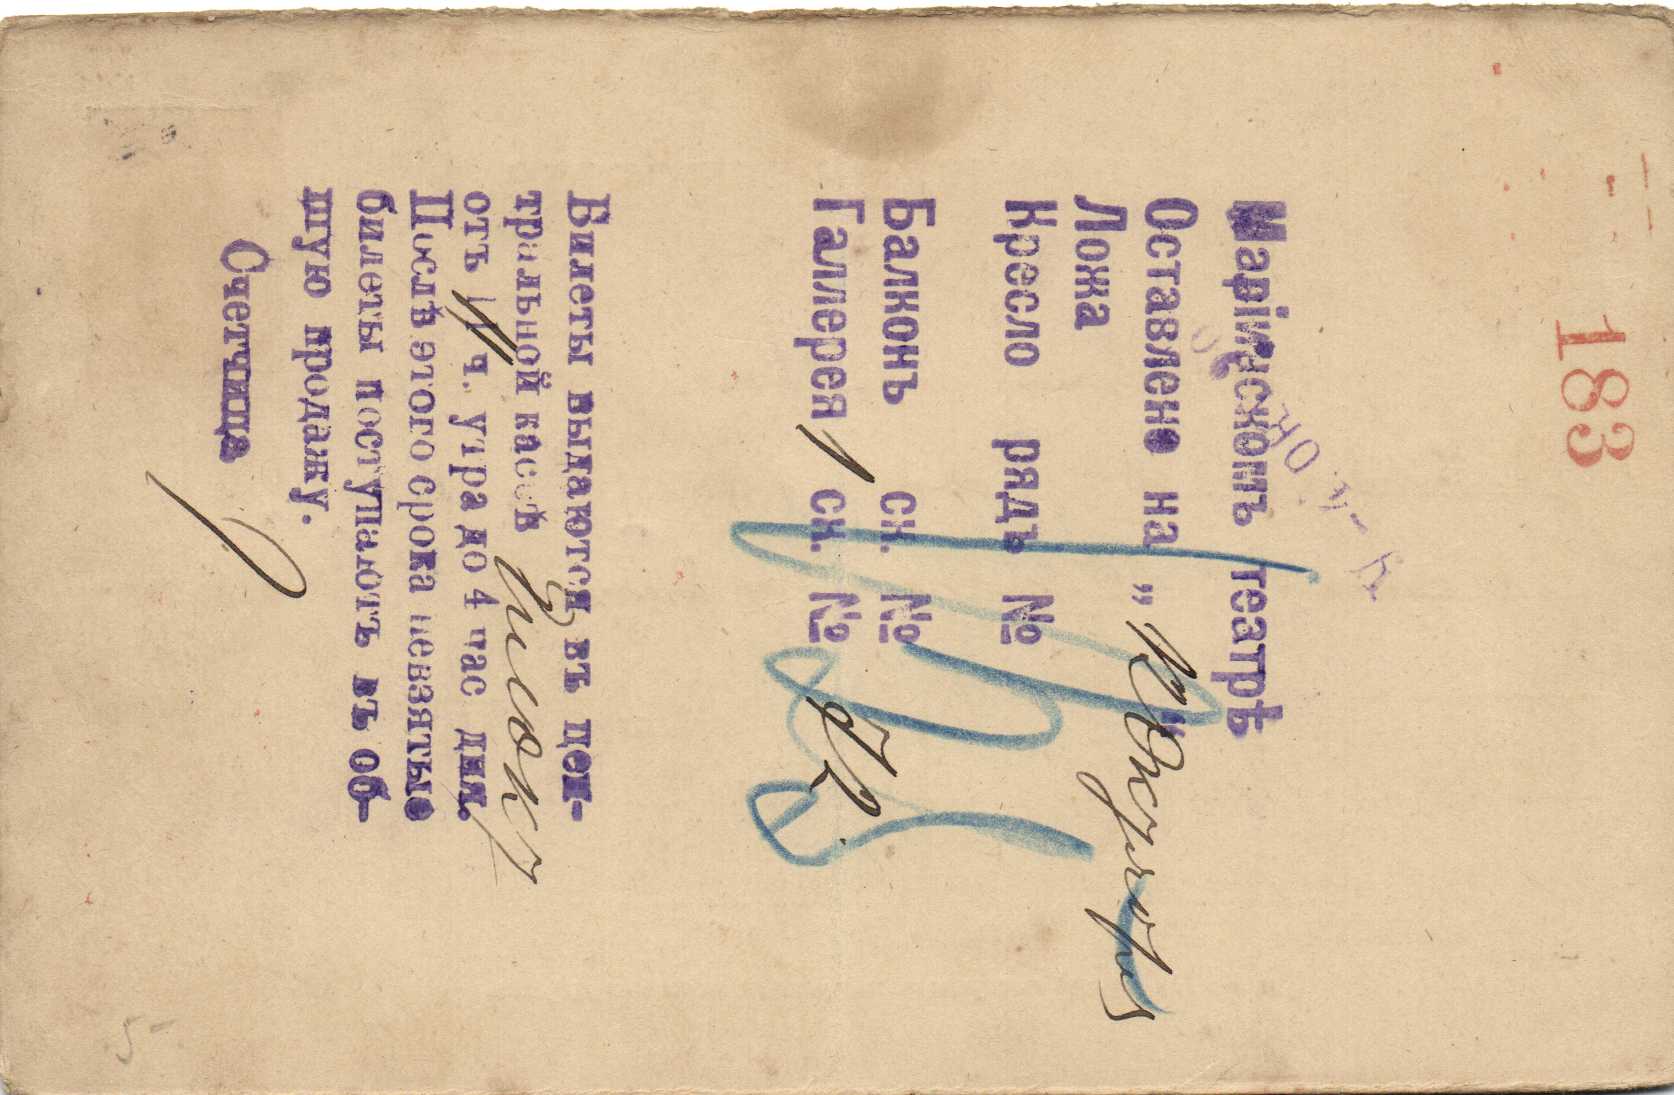 183
Маріинскомъ театрѣ
Оставлено на „
Ложа
Кресло рядъ №
Балконъ ск. №
Галлерея 1 ск. № 92
Билеты выдаются въ цен-
тральной кассѣ
отъ ч. утра до 4 час дня.
Послѣ этого срока невзятые
билеты поступаютъ въ об-
щую продажу.
Счетчица